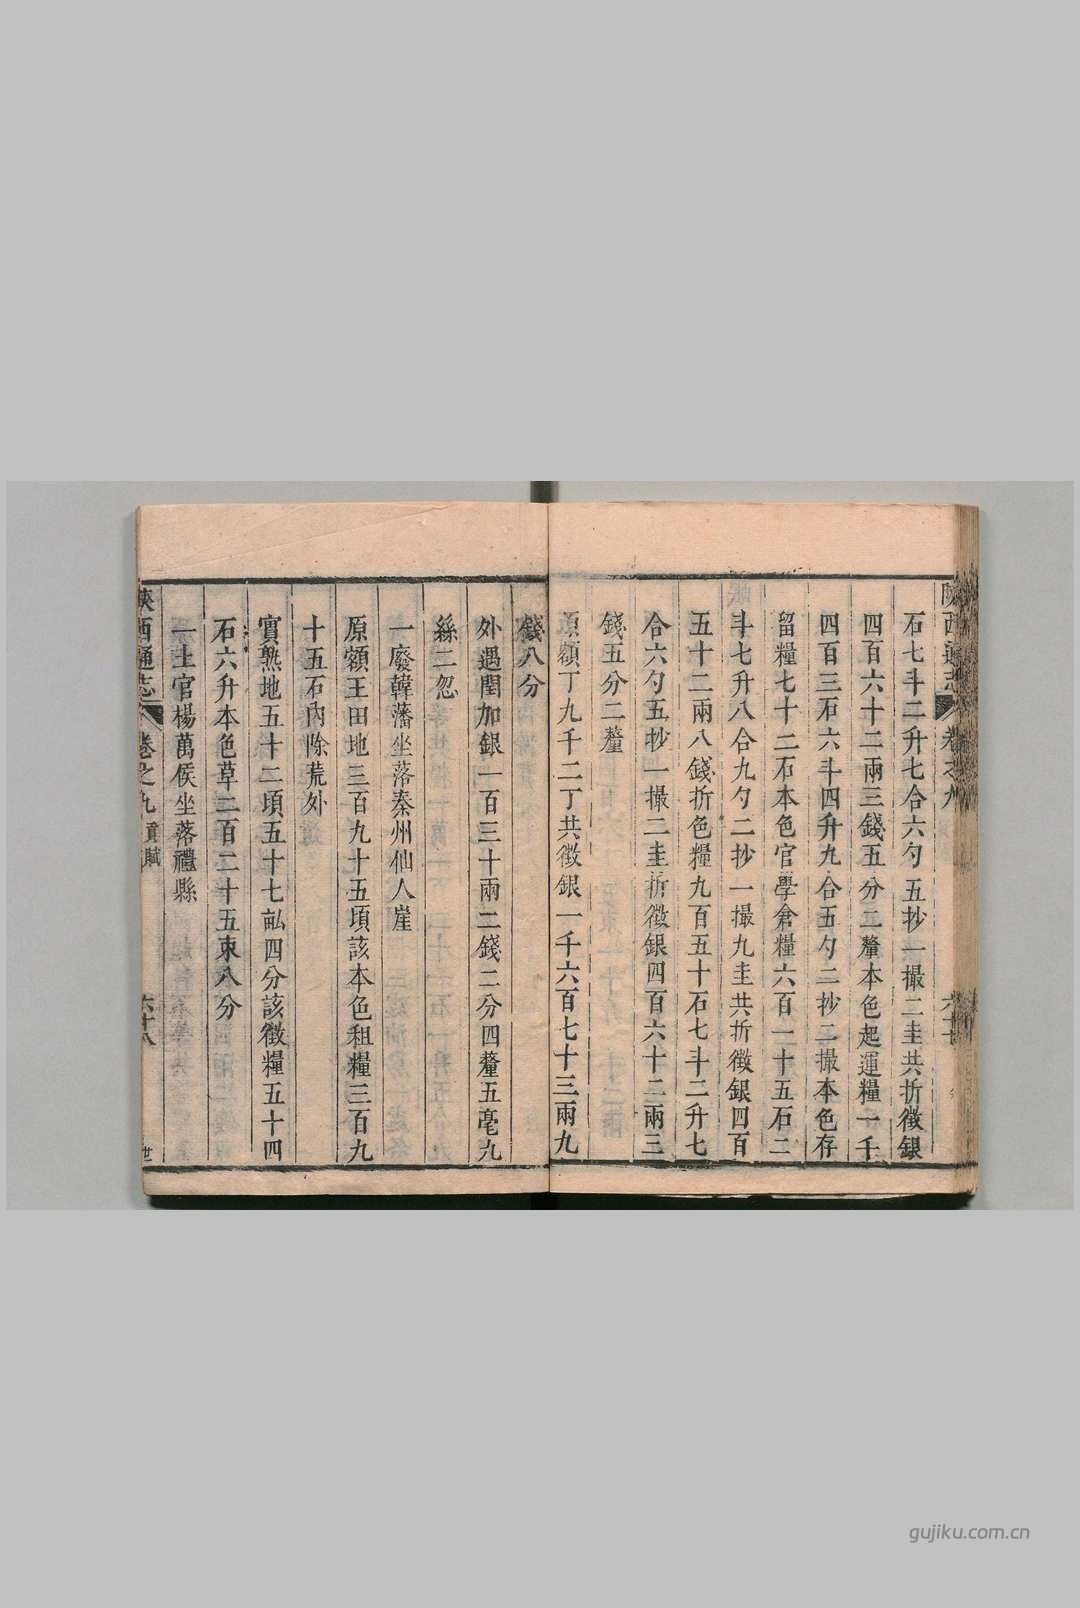 陝西通志 卷之九
石七斗二升七合六勺五抄一撮二圭共折徵銀
四百六十二兩三錢五分二釐本色起運糧一千
四百三石六斗四升九合五勺二抄二撮本色存
留糧七十二石本色官學倉糧六百一十五石二
斗七升八合九勺二抄一撮九圭共折徵銀四百
五十二兩八錢折色糧九百五十石七斗二升七
合六勺五抄一撮二圭折徵銀四百六十二兩三
錢五分二釐
原額丁九千二丁共徵銀一千六百七十三兩九
錢八分
外遇閏加銀一百三十兩二錢二分四釐五毫九
絲二忽
一廢韓藩坐落秦州仙人崖
原額王田地三百九十五頃該本色租糧三百九
十五石內除荒外
實熟地五十二頃五十七畝四分該徵糧五十四
石六升本色草二百二十五束八分
一土官楊萬侯坐落禮縣
陝西通志 卷之九 貢賦 六十八
gujiku.com.cn